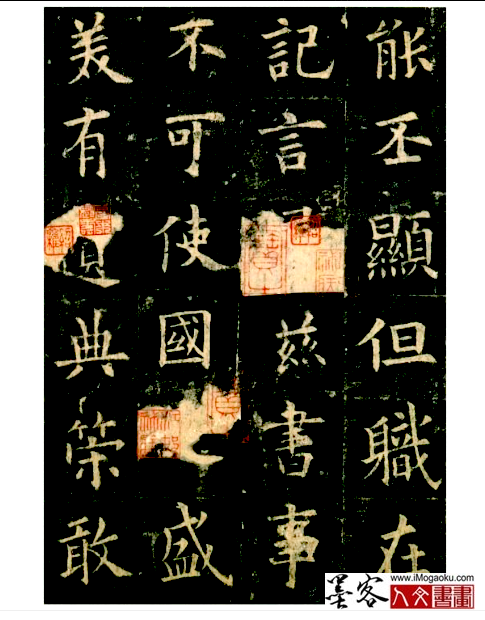 能丕顯但職在
記言茲書事
不可使國盛
美有典策敢
www.iMogaoku.com
墨客
人文書畫